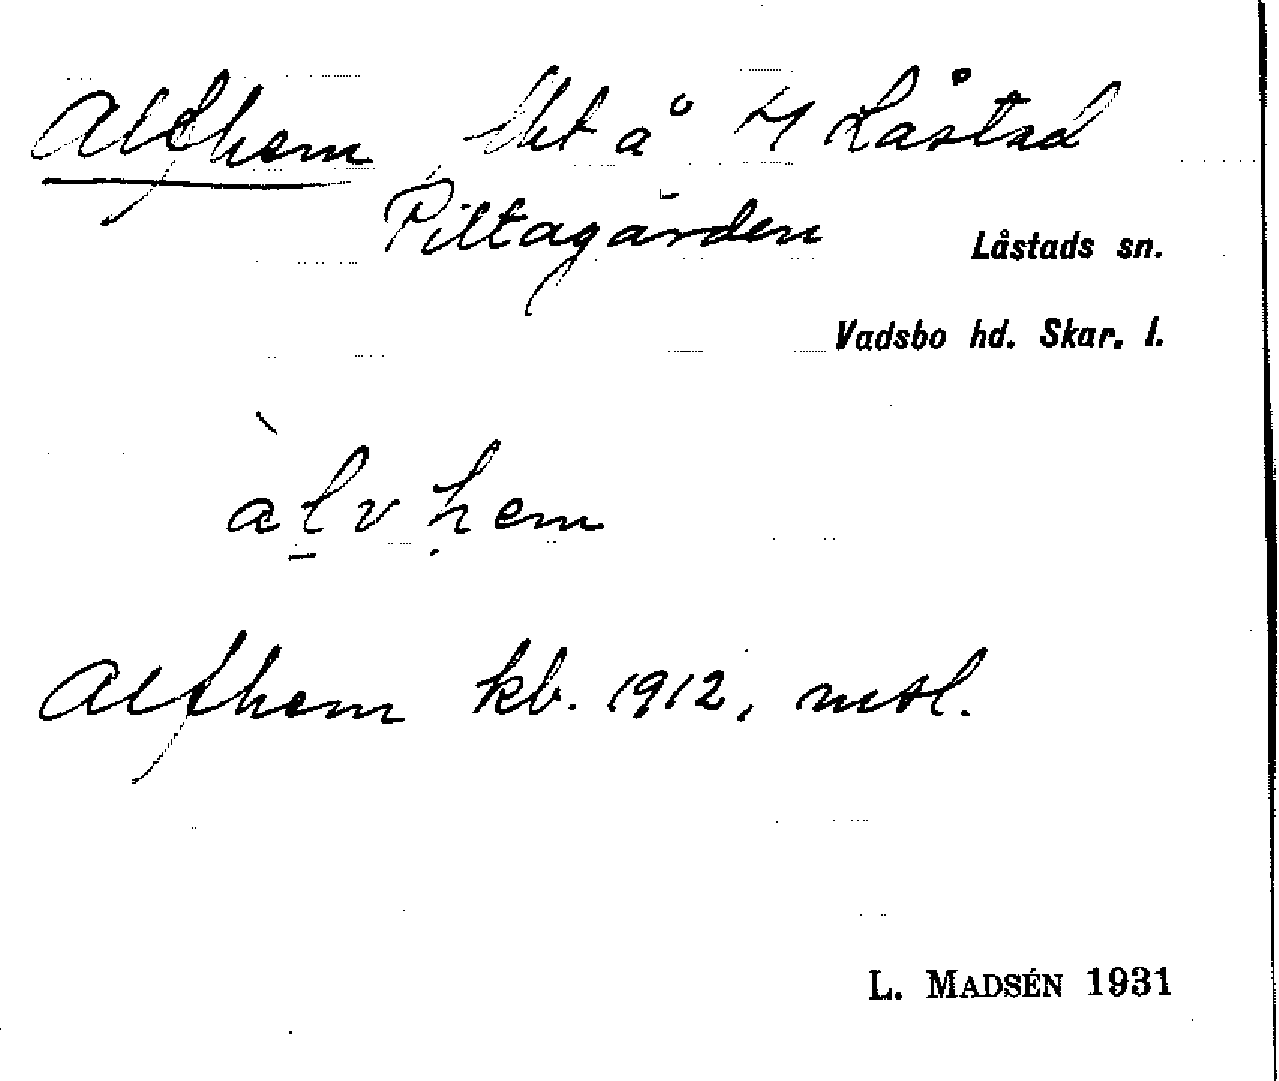 Alfhem, lht å 4 Låstad
Piltagården
Låstads sn.
Vadsbo hd. Skar. l.
àl̠vḥem
Alfhem kb. 1912, mtl.
L. MADSÉN 1931